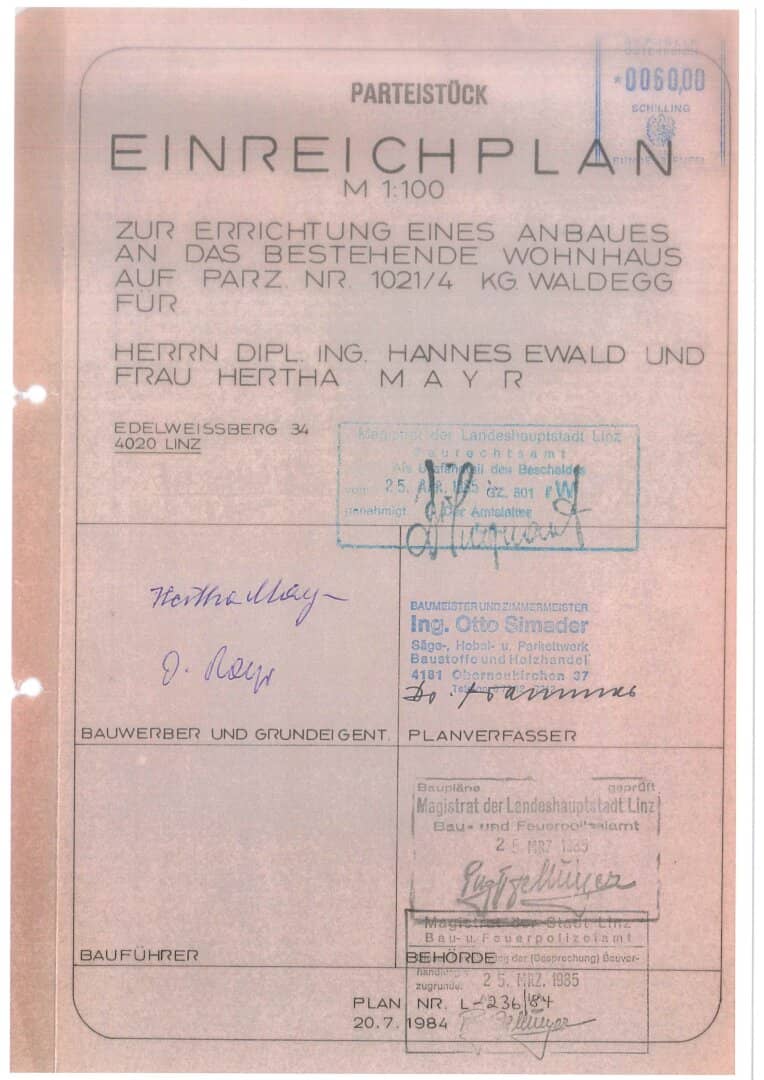 *0060,00
SCHILLING
PARTEISTÜCK
EINREICHPLAN
M 1:100
ZUR ERRICHTUNG EINES ANBAUES
AN DAS BESTEHENDE WOHNHAUS
AUF PARZ. NR. 1021/4 KG. WALDEGG
FÜR
HERRN DIPL. ING. HANNES EWALD UND
FRAU HERTHA MAYR
EDELWEISSBERG 34
4020 LINZ
Magistrat der Landeshauptstadt Linz
Baurechtsamt
Als Bestandteil des Bescheides
vom 25. APR. 1985 GZ. 501 / W
genehmigt. Der Amtsleiter
Hertha Mayr
BAUMEISTER UND ZIMMERMEISTER
Ing. Otto Simader
Säge-, Hobel- u. Parkettwerk
Baustoffe und Holzhandel
4181 Oberneukirchen 37
BAUWERBER UND GRUNDEIGENT.
PLANVERFASSER
Baupläne geprüft
Magistrat der Landeshauptstadt Linz
Bau- und Feuerpolizeiamt
25. MRZ. 1985
Magistrat der Stadt Linz
Bau- u. Feuerpolizeiamt
BAUFÜHRER
BEHÖRDE
der (Besprechung) Bauver-
handlung
zugrunde. 25. MRZ. 1985
PLAN NR. L-236/84
20.7.1984